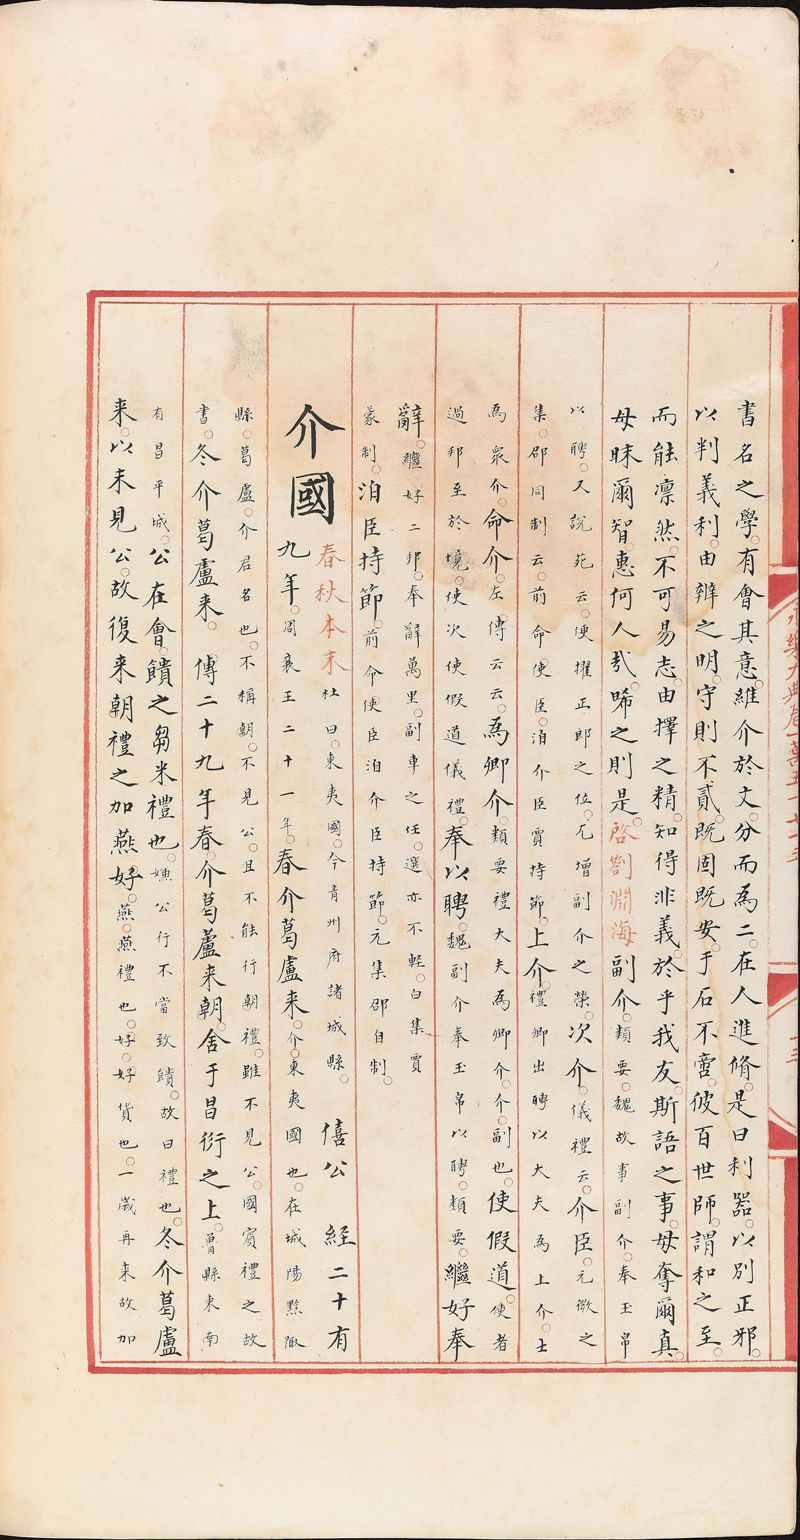 永樂大典卷一萬五千七十五
書名之學。有會其意。維介於文。分而為二。在人進脩。是曰利器。以別正邪。
以判義利。由辨之明。守則不貳。既固既安。于石不啻。彼百世師。謂和之至。
而能凛然。不可易志。由擇之精。知得非義。於乎我友。斯語之事。毋奪爾真。
毋昧爾智。惠何人哉。晞之則是。啓劄淵海副介。類要。魏故事副介。奉玉帛
以聘。又說苑云。便擢正郎之位。尤增副介之榮。次介。儀禮云。介臣。元微之
集。郡同制云。前命使臣。洎介臣賈持節。上介。禮卿出聘以大夫為上介。士
為衆介。命介。左傳云云。為卿介。類要禮大夫為卿介。介。副也。使假道。使者
過邦至於境。使次使假道儀禮。奉以聘。魏副介奉玉帛以聘。類要。繼好奉
辭。繼好二邦。奉辭萬里。副車之任。選亦不輕。白集賈
蒙制。洎臣持節。前命使臣洎介臣持節。元集郡自制。
介國 春秋本末 杜曰。東夷國。今青州府諸城縣。 僖公 經二十有
九年。周襄王二十一年。春介葛盧来。介。東夷國也。在城陽黔陬
縣。葛盧。介君名也。不稱朝。不見公。且不能行朝禮。雖不見公。國賓禮之故
書。冬介葛盧来。 傳二十九年春。介葛盧来朝。舍于昌衍之上。魯縣東南
有昌平城。公在會。饋之芻米禮也。嫌公行不當致饋。故曰禮也。冬介葛盧
来。以未見公。故復来朝禮之加燕好。燕。燕禮也。好。好貨也。一歲再来故加